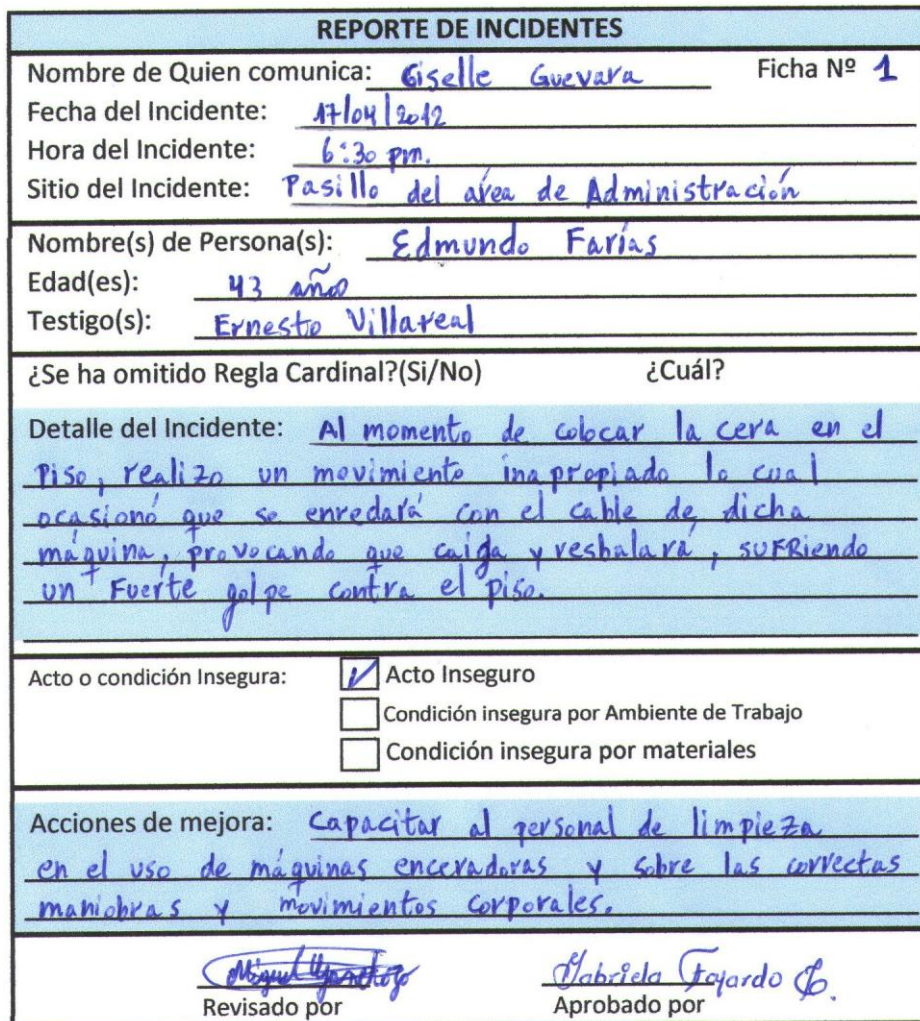 REPORTE DE INCIDENTES
Nombre de Quien comunica: Giselle Guevara Ficha Nº 1
Fecha del Incidente: 17/04/2012
Hora del Incidente: 6:30 pm.
Sitio del Incidente: Pasillo del area de Administración
Nombre(s) de Persona(s): Edmundo Farías
Edad(es): 43 años
Testigo(s): Ernesto Villareal
¿Se ha omitido Regla Cardinal?(Si/No) ¿Cuál?
Detalle del Incidente: Al momento de colocar la cera en el
piso, realizo un movimiento inapropiado lo cual
ocasionó que se enredará con el cable de dicha
máquina, provocando que caiga y resbalará, sufriendo
un fuerte golpe contra el piso.
Acto o condición Insegura: Acto Inseguro
Condición insegura por Ambiente de Trabajo
Condición insegura por materiales
Acciones de mejora: Capacitar al personal de limpieza
en el uso de máquinas enceradoras y sobre las correctas
maniobras y movimientos corporales.
Miguel Gabriela Fajardo
Revisado por Aprobado por